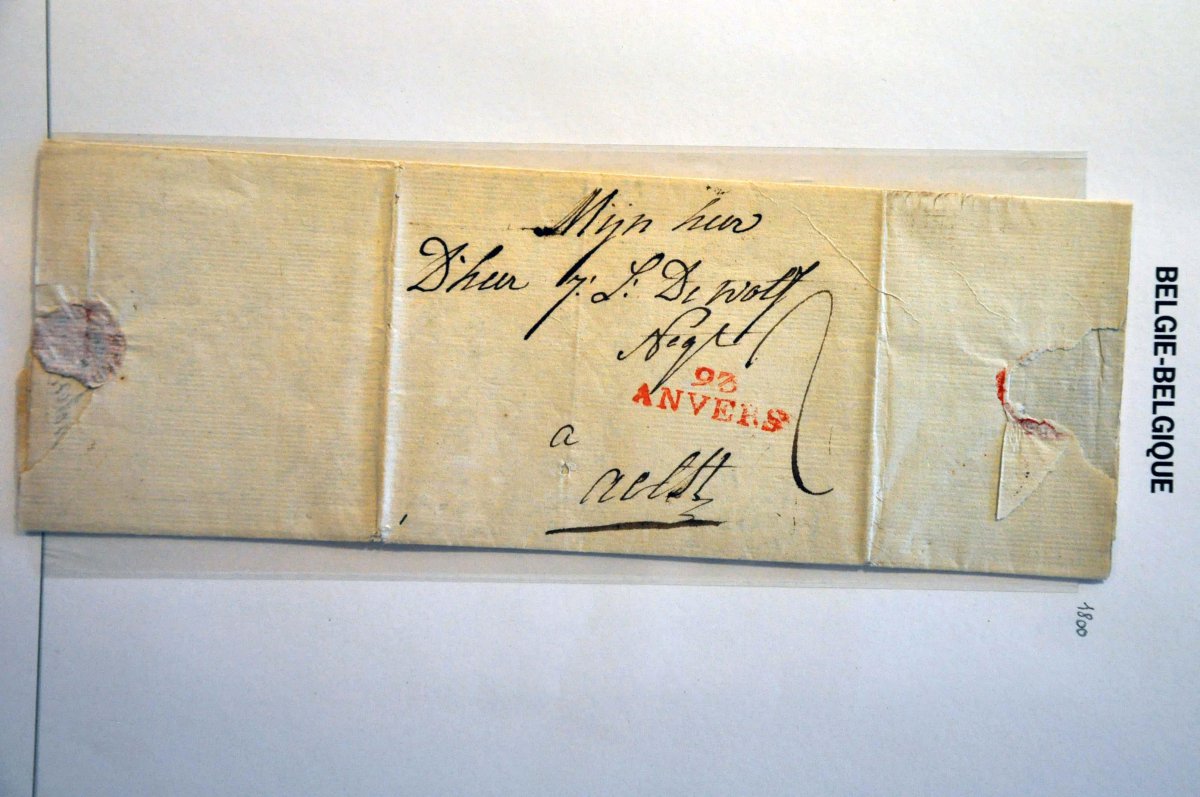 Mijn heer
D'heer J: S: De wolf
Negt
93
ANVERS
a
aelst
BELGIE-BELGIQUE
1800